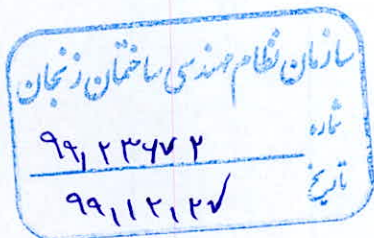 سازمان نظام مهندسی ساختمان زنجان
شماره ۹۹,۲۳۶۷۲
تاریخ ۹۹,۱۲,۲۷